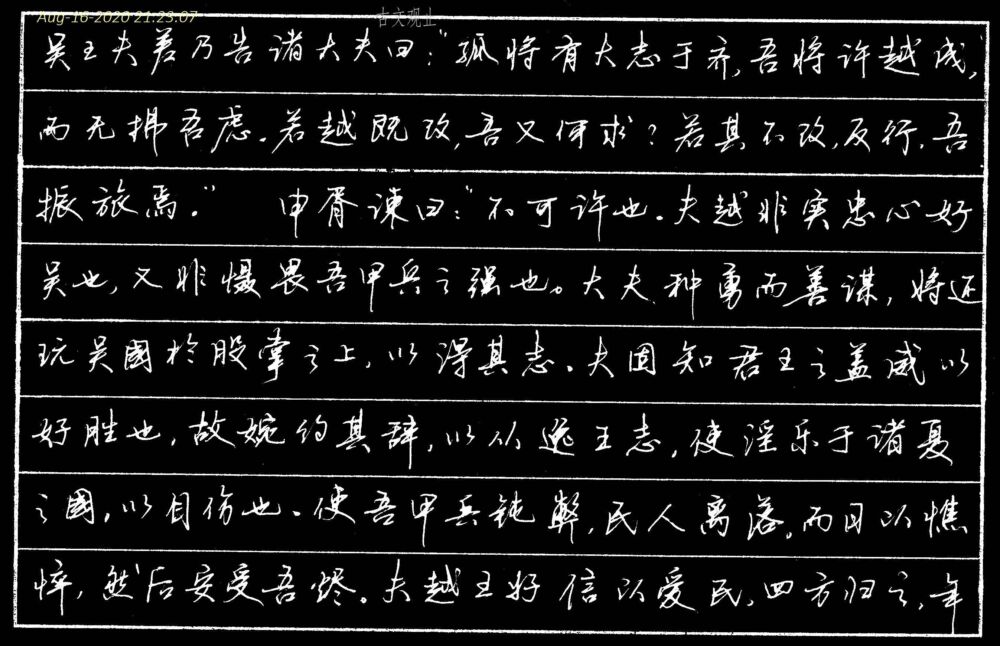 Aug-16-2020 21:23:07
古文观止
吴王夫差乃告诸大夫曰:“孤将有大志于齐,吾将许越成,
而无拂吾虑。若越既改,吾又何求?若其不改,反行,吾
振旅焉。” 申胥谏曰:“不可许也。夫越非实忠心好
吴也,又非慑畏吾甲兵之强也。大夫种勇而善谋,将还
玩吴國於股掌之上,以得其志。夫固知君王之盖威以
好胜也,故婉约其辞,以从逸王志,使淫乐于诸夏
之國,以自伤也。使吾甲兵钝弊,民人离落,而日以憔
悴,然后安受吾烬。夫越王好信以爱民,四方归之,年